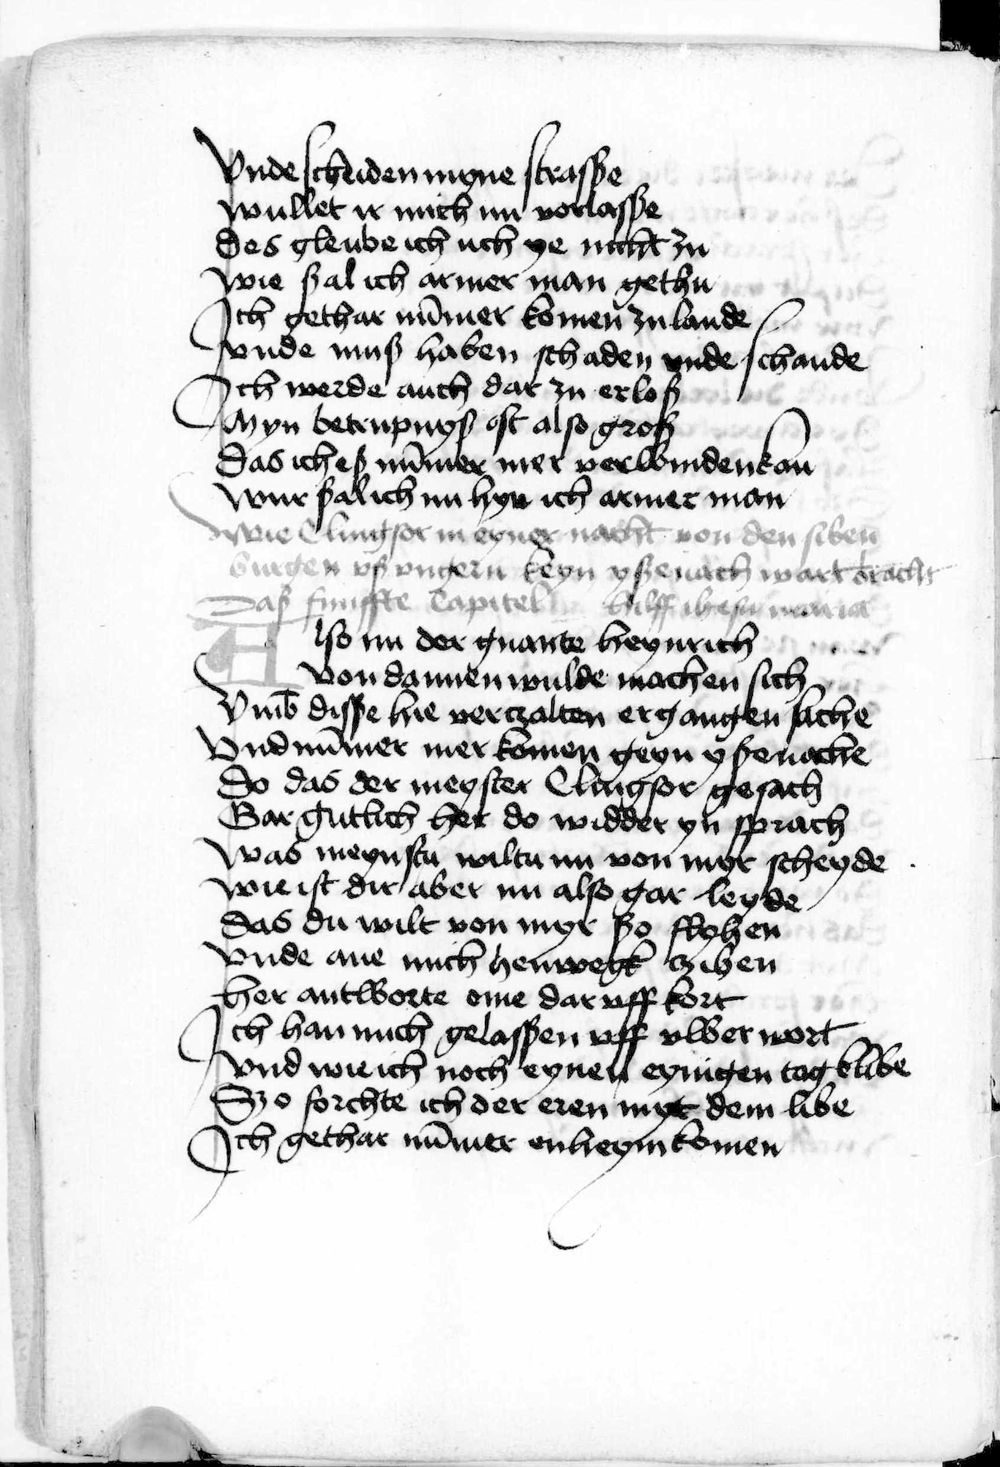 Vnde scheiden myne strasse
wullet ir mich nu vorlasse
Des gleube ich uch ye nicht zu
wie sal ich armer man gethu
Ich gethar nūmer komen zu lande
vnde muß haben schaden vnde schande
Ich werde auch dar zu erloß
Myn betrupnyß ist also groß
Das ich eß nūmer mer verwinden kan
wur sal ich nu hyn ich armer man
wie Clingsor in eyner nacht von den siben
burgen vß vngern keyn ysenach wart bracht
Daß funffte Capitel hilff ihesu maria
Also nu der gnante heynrich
von dannen wulde machen sich
Vmb disse hie verczalten ergangen sache
Vnd nūmer mer komen geyn ysenache
Do das der meyster Clingsor gesach
Gar gutlich her do widder yn sprach
was meynstu wiltu nu von myr scheyde
wie ist dir aber nu also gar leyde
Das du wilt von myr ßo flyhen
vnde ane mich henwegk czihen
her antworte eme dar vff kort
Ich han mich gelassen vff vwer wort
vnd wie ich noch eynen eynigen tag blibe
Szo forchte ich der eren myt dem libe
Ich gethar nūmer enheym komen